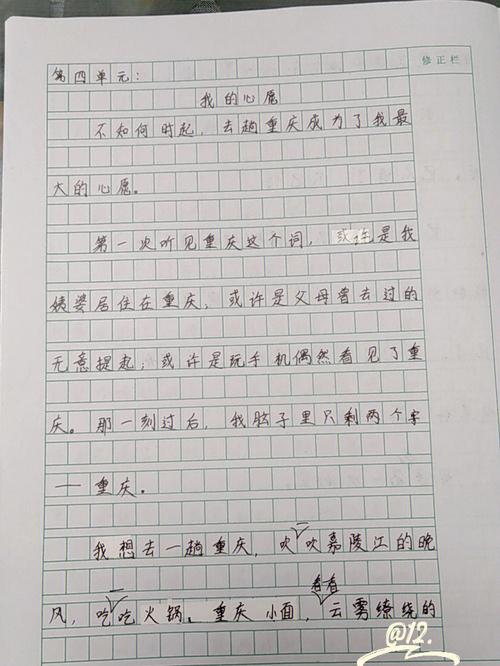 修正栏
第四单元：
我的心愿
不知何时起，去趟重庆成为了我最
大的心愿。
第一次听见重庆这个词，或许是我
姨婆居住在重庆，或许是父母曾去过的
无意提起；或许是玩手机偶然看见了重
庆。那一刻过后，我脑子里只剩两个字
—重庆。
我想去一趟重庆，吹一吹嘉陵江的晚
风，吃一吃火锅、重庆小面，看看云雾缭绕的
@12.